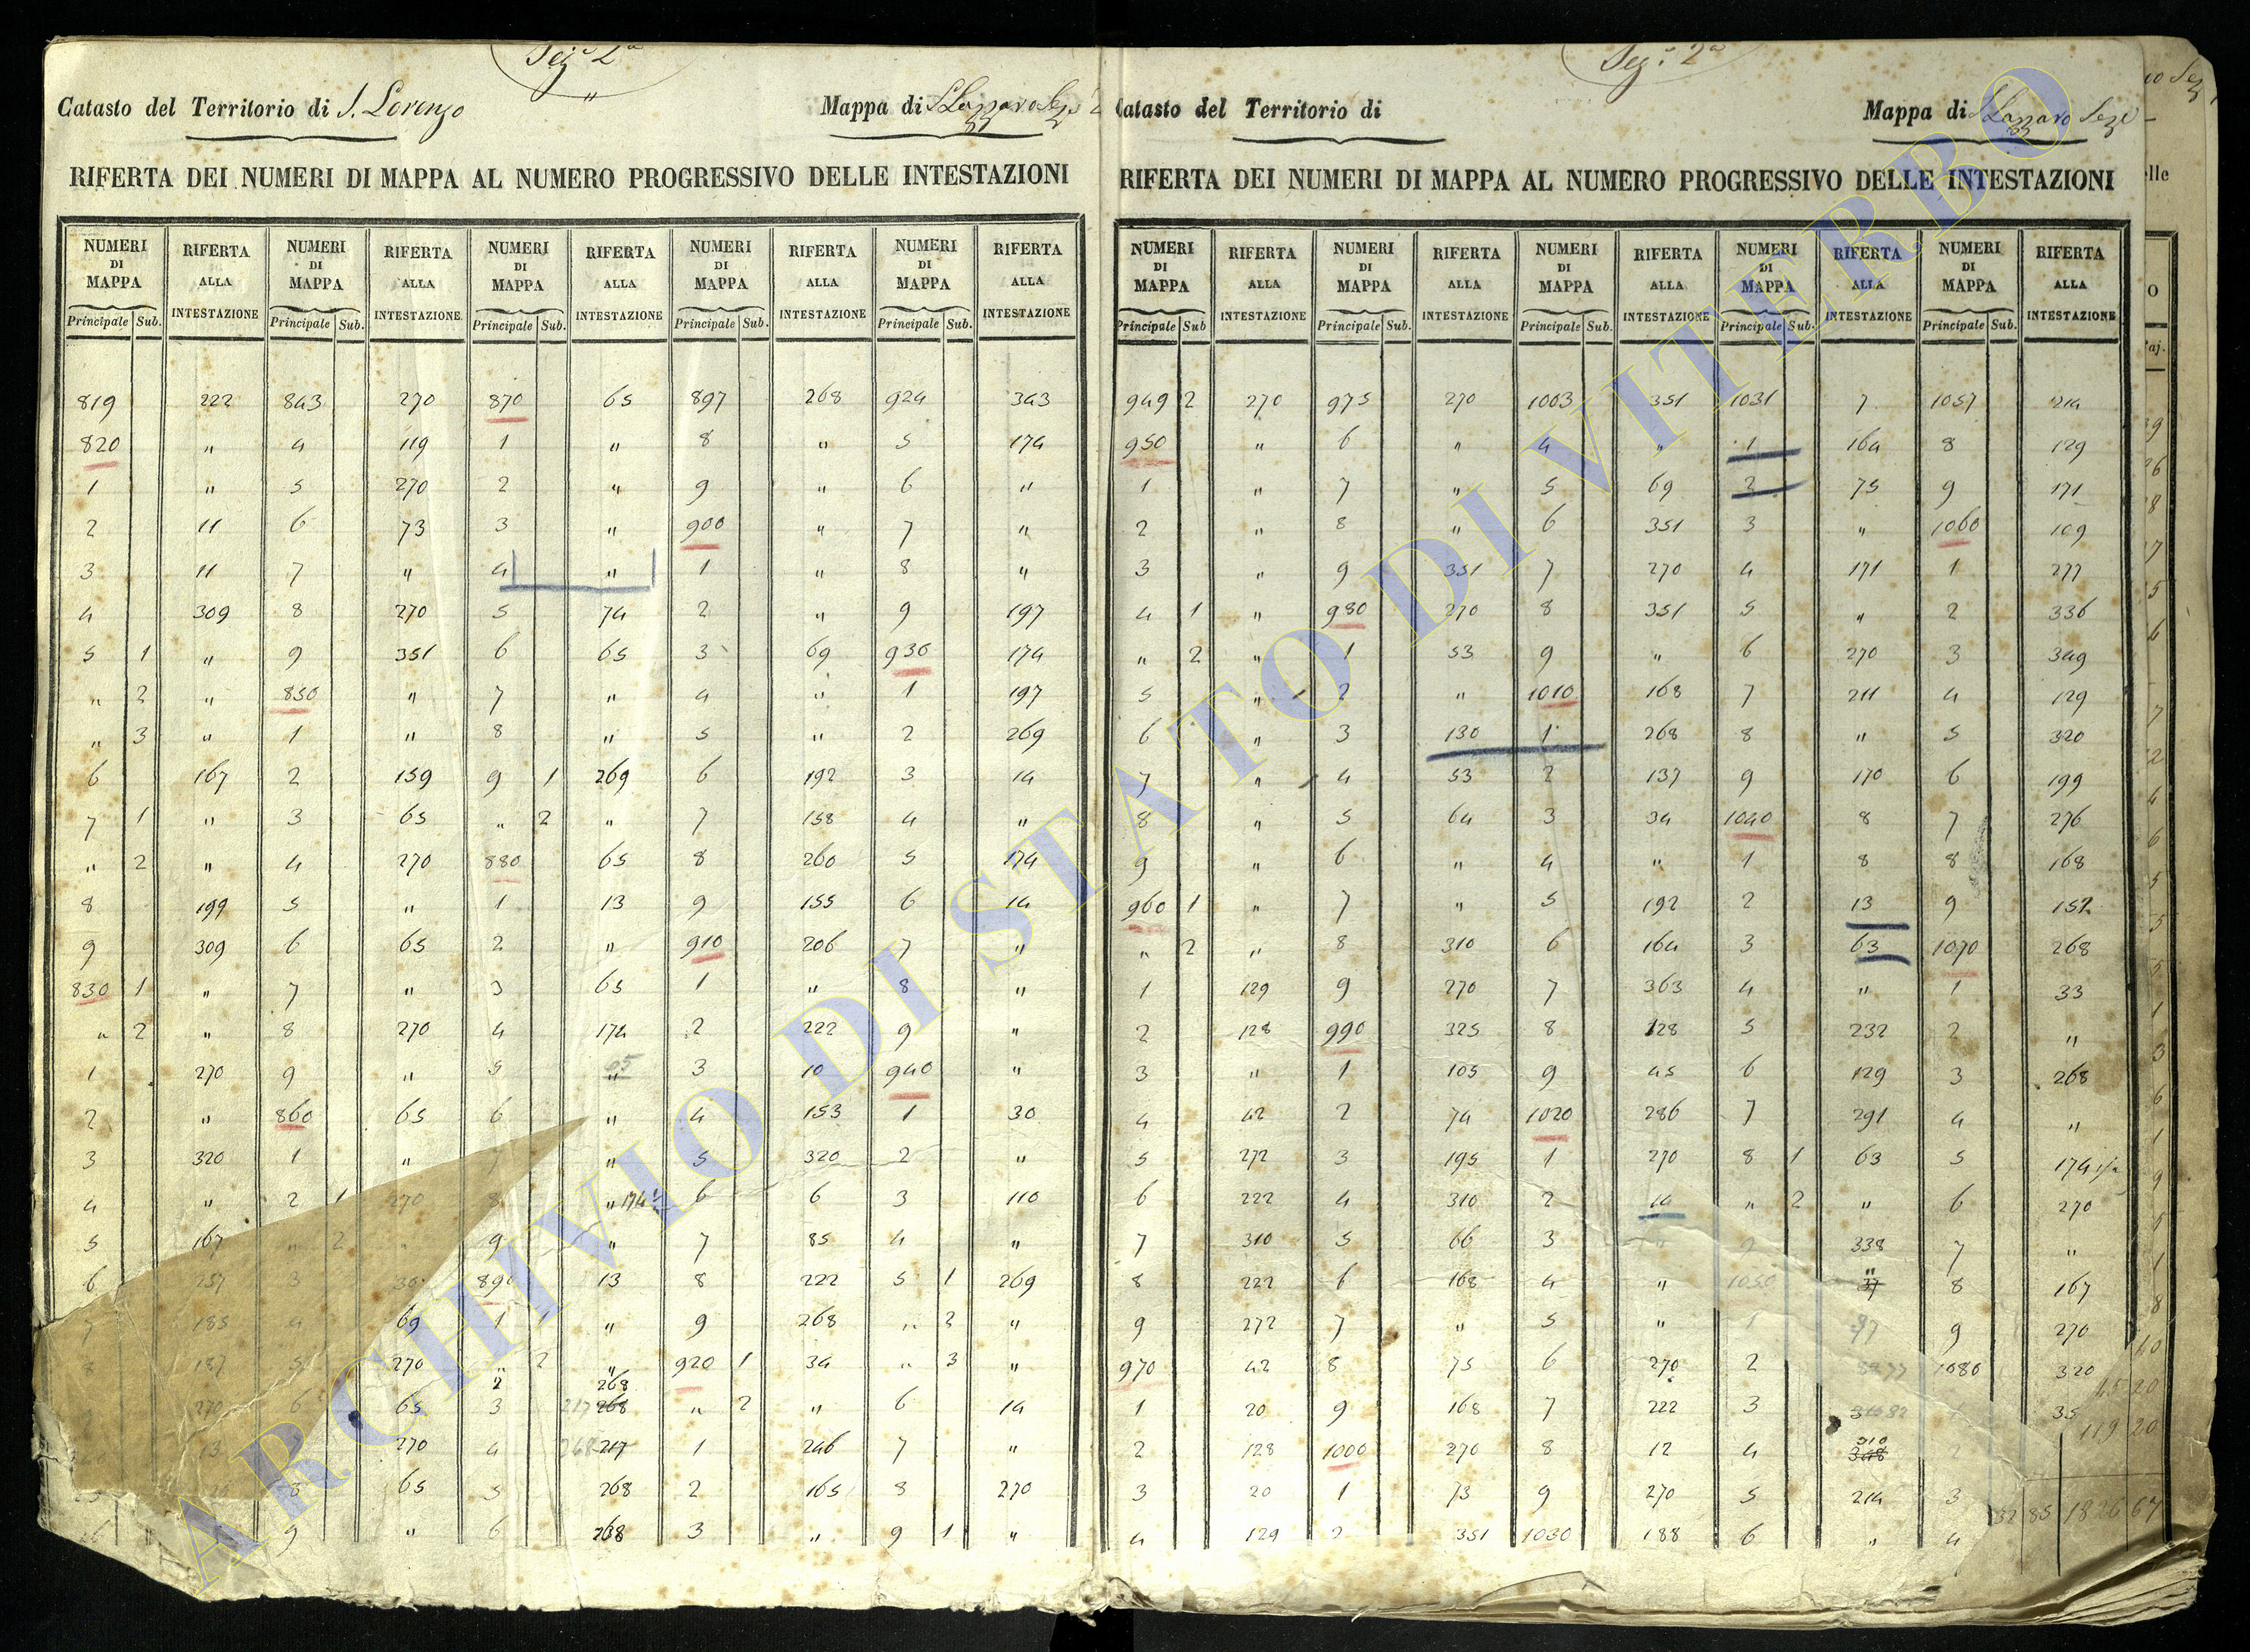 Sez.e 2a
Catasto del Territorio di S. Lorenzo Mappa di S Lazzaro Sez. 2
RIFERTA DEI NUMERI DI MAPPA AL NUMERO PROGRESSIVO DELLE INTESTAZIONI
NUMERI DI MAPPA RIFERTA ALLA INTESTAZIONE NUMERI DI MAPPA RIFERTA ALLA INTESTAZIONE NUMERI DI MAPPA RIFERTA ALLA INTESTAZIONE NUMERI DI MAPPA RIFERTA ALLA INTESTAZIONE NUMERI DI MAPPA RIFERTA ALLA INTESTAZIONE
Principale Sub. Principale Sub. Principale Sub. Principale Sub. Principale Sub.
819 222 843 270 870 65 897 268 924 343
820 " 4 119 1 " 8 " 5 174
1 " 5 270 2 " 9 " 6 "
2 11 6 73 3 " 900 " 7 "
3 11 7 " 4 " 1 " 8 "
4 309 8 270 5 74 2 " 9 197
5 1 " 9 351 6 65 3 69 930 174
" 2 " 850 " 7 " 4 " 1 197
" 3 " 1 " 8 " 5 " 2 269
6 167 2 159 9 1 269 6 192 3 14
7 1 " 3 65 " 2 " 7 158 4 "
" 2 " 4 270 880 65 8 260 5 174
8 199 5 " 1 13 9 155 6 14
9 309 6 65 2 " 910 206 7 "
830 1 " 7 " 3 65 1 " 8 "
" 2 " 8 270 4 174 2 222 9 "
1 270 9 " 5 " 3 10 940 "
2 " 860 65 6 " 4 153 1 30
3 320 1 " 7 " 5 320 2 "
4 " 2 1 270 8 " 174 6 6 3 110
5 167 " 2 " 9 " 7 85 4 "
6 257 3 890 13 8 222 5 1 269
7 185 4 69 1 1 " 9 268 " 2 "
8 187 5 270 " 2 " 920 1 34 " 3 "
270 6 65 2 3 268 217 268 " 2 " 6 14
13 270 4 268 217 1 246 7 "
8 65 5 268 2 165 8 270
9 " 6 268 3 " 9 1 "
Sez. 2a
Catasto del Territorio di Mappa di S Lazzaro Sez e
RIFERTA DEI NUMERI DI MAPPA AL NUMERO PROGRESSIVO DELLE INTESTAZIONI
NUMERI DI MAPPA RIFERTA ALLA INTESTAZIONE NUMERI DI MAPPA RIFERTA ALLA INTESTAZIONE NUMERI DI MAPPA RIFERTA ALLA INTESTAZIONE NUMERI DI MAPPA RIFERTA ALLA INTESTAZIONE NUMERI DI MAPPA RIFERTA ALLA INTESTAZIONE
Principale Sub Principale Sub. Principale Sub. Principale Sub. Principale Sub.
949 2 270 975 270 1003 351 1031 7 1057 214
950 " 6 " 4 " 1 164 8 129
1 " 7 " 5 69 2 75 9 171
2 " 8 " 6 351 3 " 1060 109
3 " 9 351 7 270 4 171 1 277
4 1 " 980 270 8 351 5 " 2 336
" 2 " 1 53 9 " 6 270 3 349
5 " 2 " 1010 168 7 211 4 129
6 " 3 130 1 268 8 " 5 320
7 " 4 53 2 137 9 170 6 199
8 " 5 64 3 34 1040 8 7 276
9 " 6 " 4 " 1 8 8 168
960 1 " 7 " 5 192 2 13 9 152
" 2 " 8 310 6 164 3 63 1070 268
1 129 9 270 7 363 4 " 1 33
2 128 990 325 8 128 5 232 2 "
3 " 1 105 9 45 6 129 3 268
4 42 2 74 1020 286 7 291 4 "
5 272 3 195 1 270 8 1 63 5 174 1/2
6 222 4 310 2 14 " 2 " 6 270
7 310 5 66 3 " 9 338 7 "
8 222 6 168 4 " 1050 " 37 8 167
9 272 7 " 5 " 1 97 9 270
970 42 8 75 6 270 2 1080 320
1 20 9 168 7 222 3 35
2 128 1000 270 8 12 4 310 348
3 20 1 73 9 270 5 214 3
4 129 2 351 1030 188 6 " 4
45 20
119 20
32 85 18 26 67
ARCHIVIO DI STATO DI VITERBO